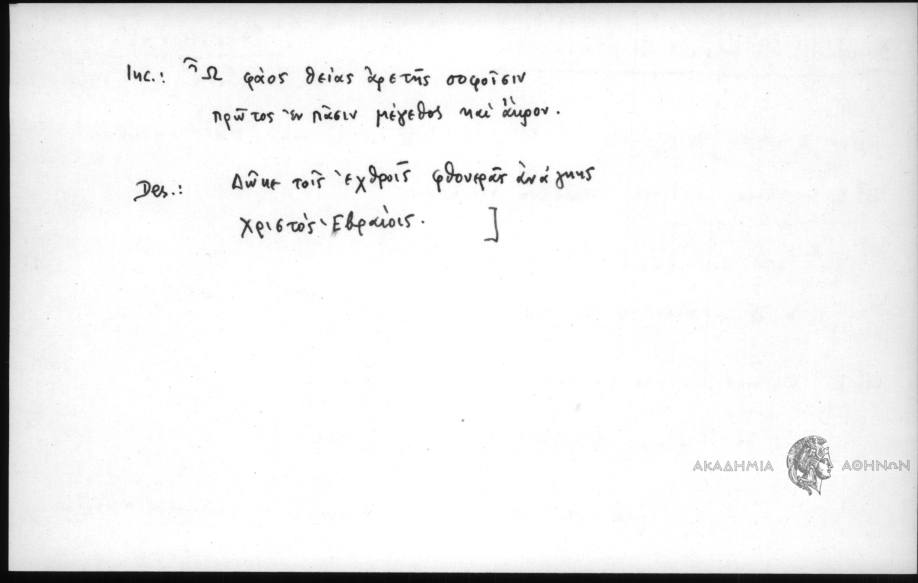 Inc.: Ὦ φάος θείας ἀρετῆς σοφοῖσιν
πρῶτος ἐν πᾶσιν μέγεθος καὶ ἄκρον.
Des.: Δῶκε τοῖς ἐχθροῖς φθονερᾶς ἀνάγκης
Χριστὸς Ἑβραίοις. ]
ΑΚΑΔΗΜΙΑ ΑΘΗΝΩΝ